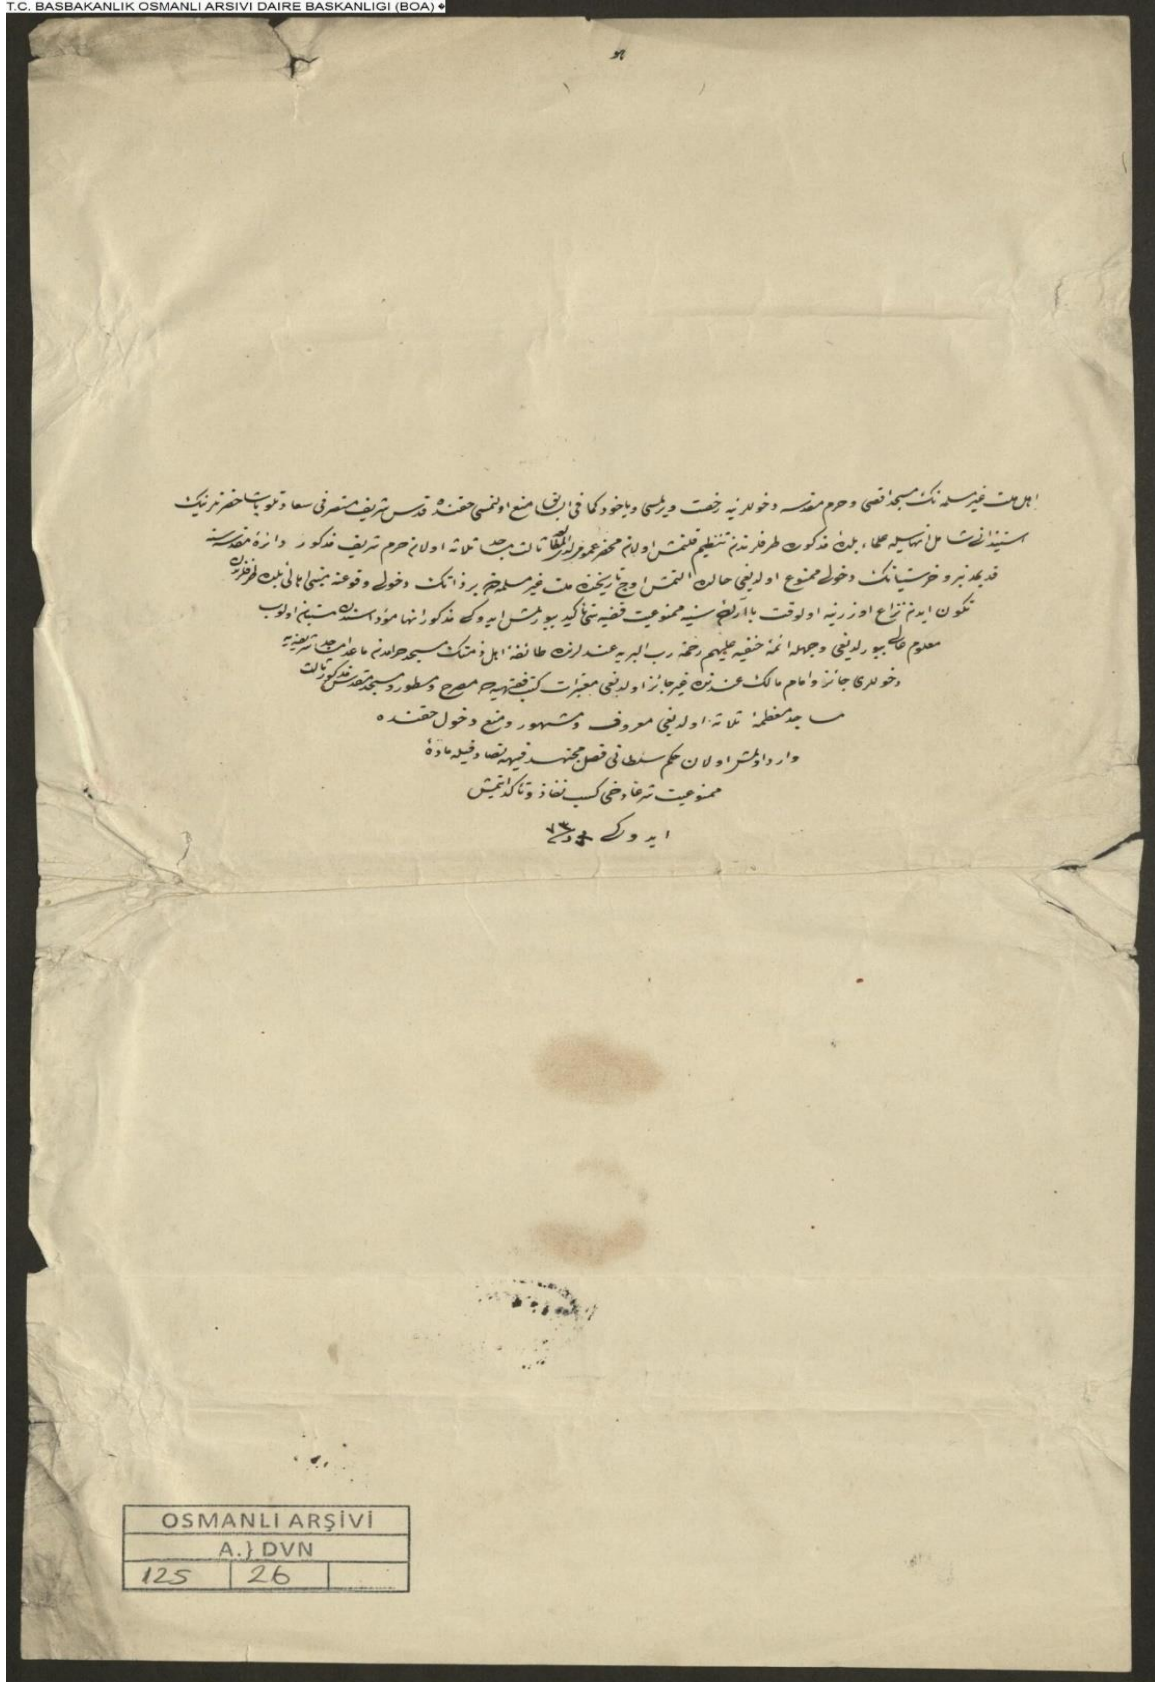 T.C. BASBAKANLIK OSMANLI ARSIVI DAIRE BASKANLIGI (BOA)
اهل ملت غیر مسلمه نك مسجد اقصی و حرم مقدسه دخوللرینه رخصت ویرلمسی ویاخود كما فی السابق منع اولنمسی حقنده قدس شریف متصرفی سعادتلو پاشا حضرتلرینك
استیذانی شامل انهاسیله علماء بلدهٔ مذكوره طرفلرندن تنظیم قلنمش اولان محضر ثالث مساجد ثلاثه اولان حرم شریف مذكور دائرهٔ مقدسه سنه
قدیمدنبرو خرستیانك دخولی ممنوع اولدیغی حالده التمش اوچ تاریخنده ملت غیر مسلمه دن بر ذاتك دخولی وقوعنه مبنی اهالی بلده طرفلرندن
تكون ایدن نزاع اوزرینه اولوقت با ارادهٔ سنیه ممنوعیت قضیه سی تأكید بیورلمش ایدوكی مذكور انها مؤداسندن مستبان اولوب
معلوم عالی بیورلدیغی وجهله ائمهٔ حنفیه علیهم رحمة رب البریه عندلرنده طائفهٔ اهل ذمتك مسجد حرامدن ماعدا مساجد شریفه یه
دخوللری جائز و امام مالك عندنده غیر جائز اولدیغی معتبرات كتب فقهیه ده مصرح و مسطور و مسجد مقدس مذكور ثالث
مساجد معظمهٔ ثلاثه اولدیغی معروف و مشهور و منع دخول حقنده
وارد اولمش اولان حكم سلطانی فصل مجتهد فیهه تصادفیله مادهٔ
ممنوعیت شرعا دخی كسب نفاذ و تأكد ایتمش
ایدوكی
OSMANLI ARŞİVİ
A.} DVN
125 26